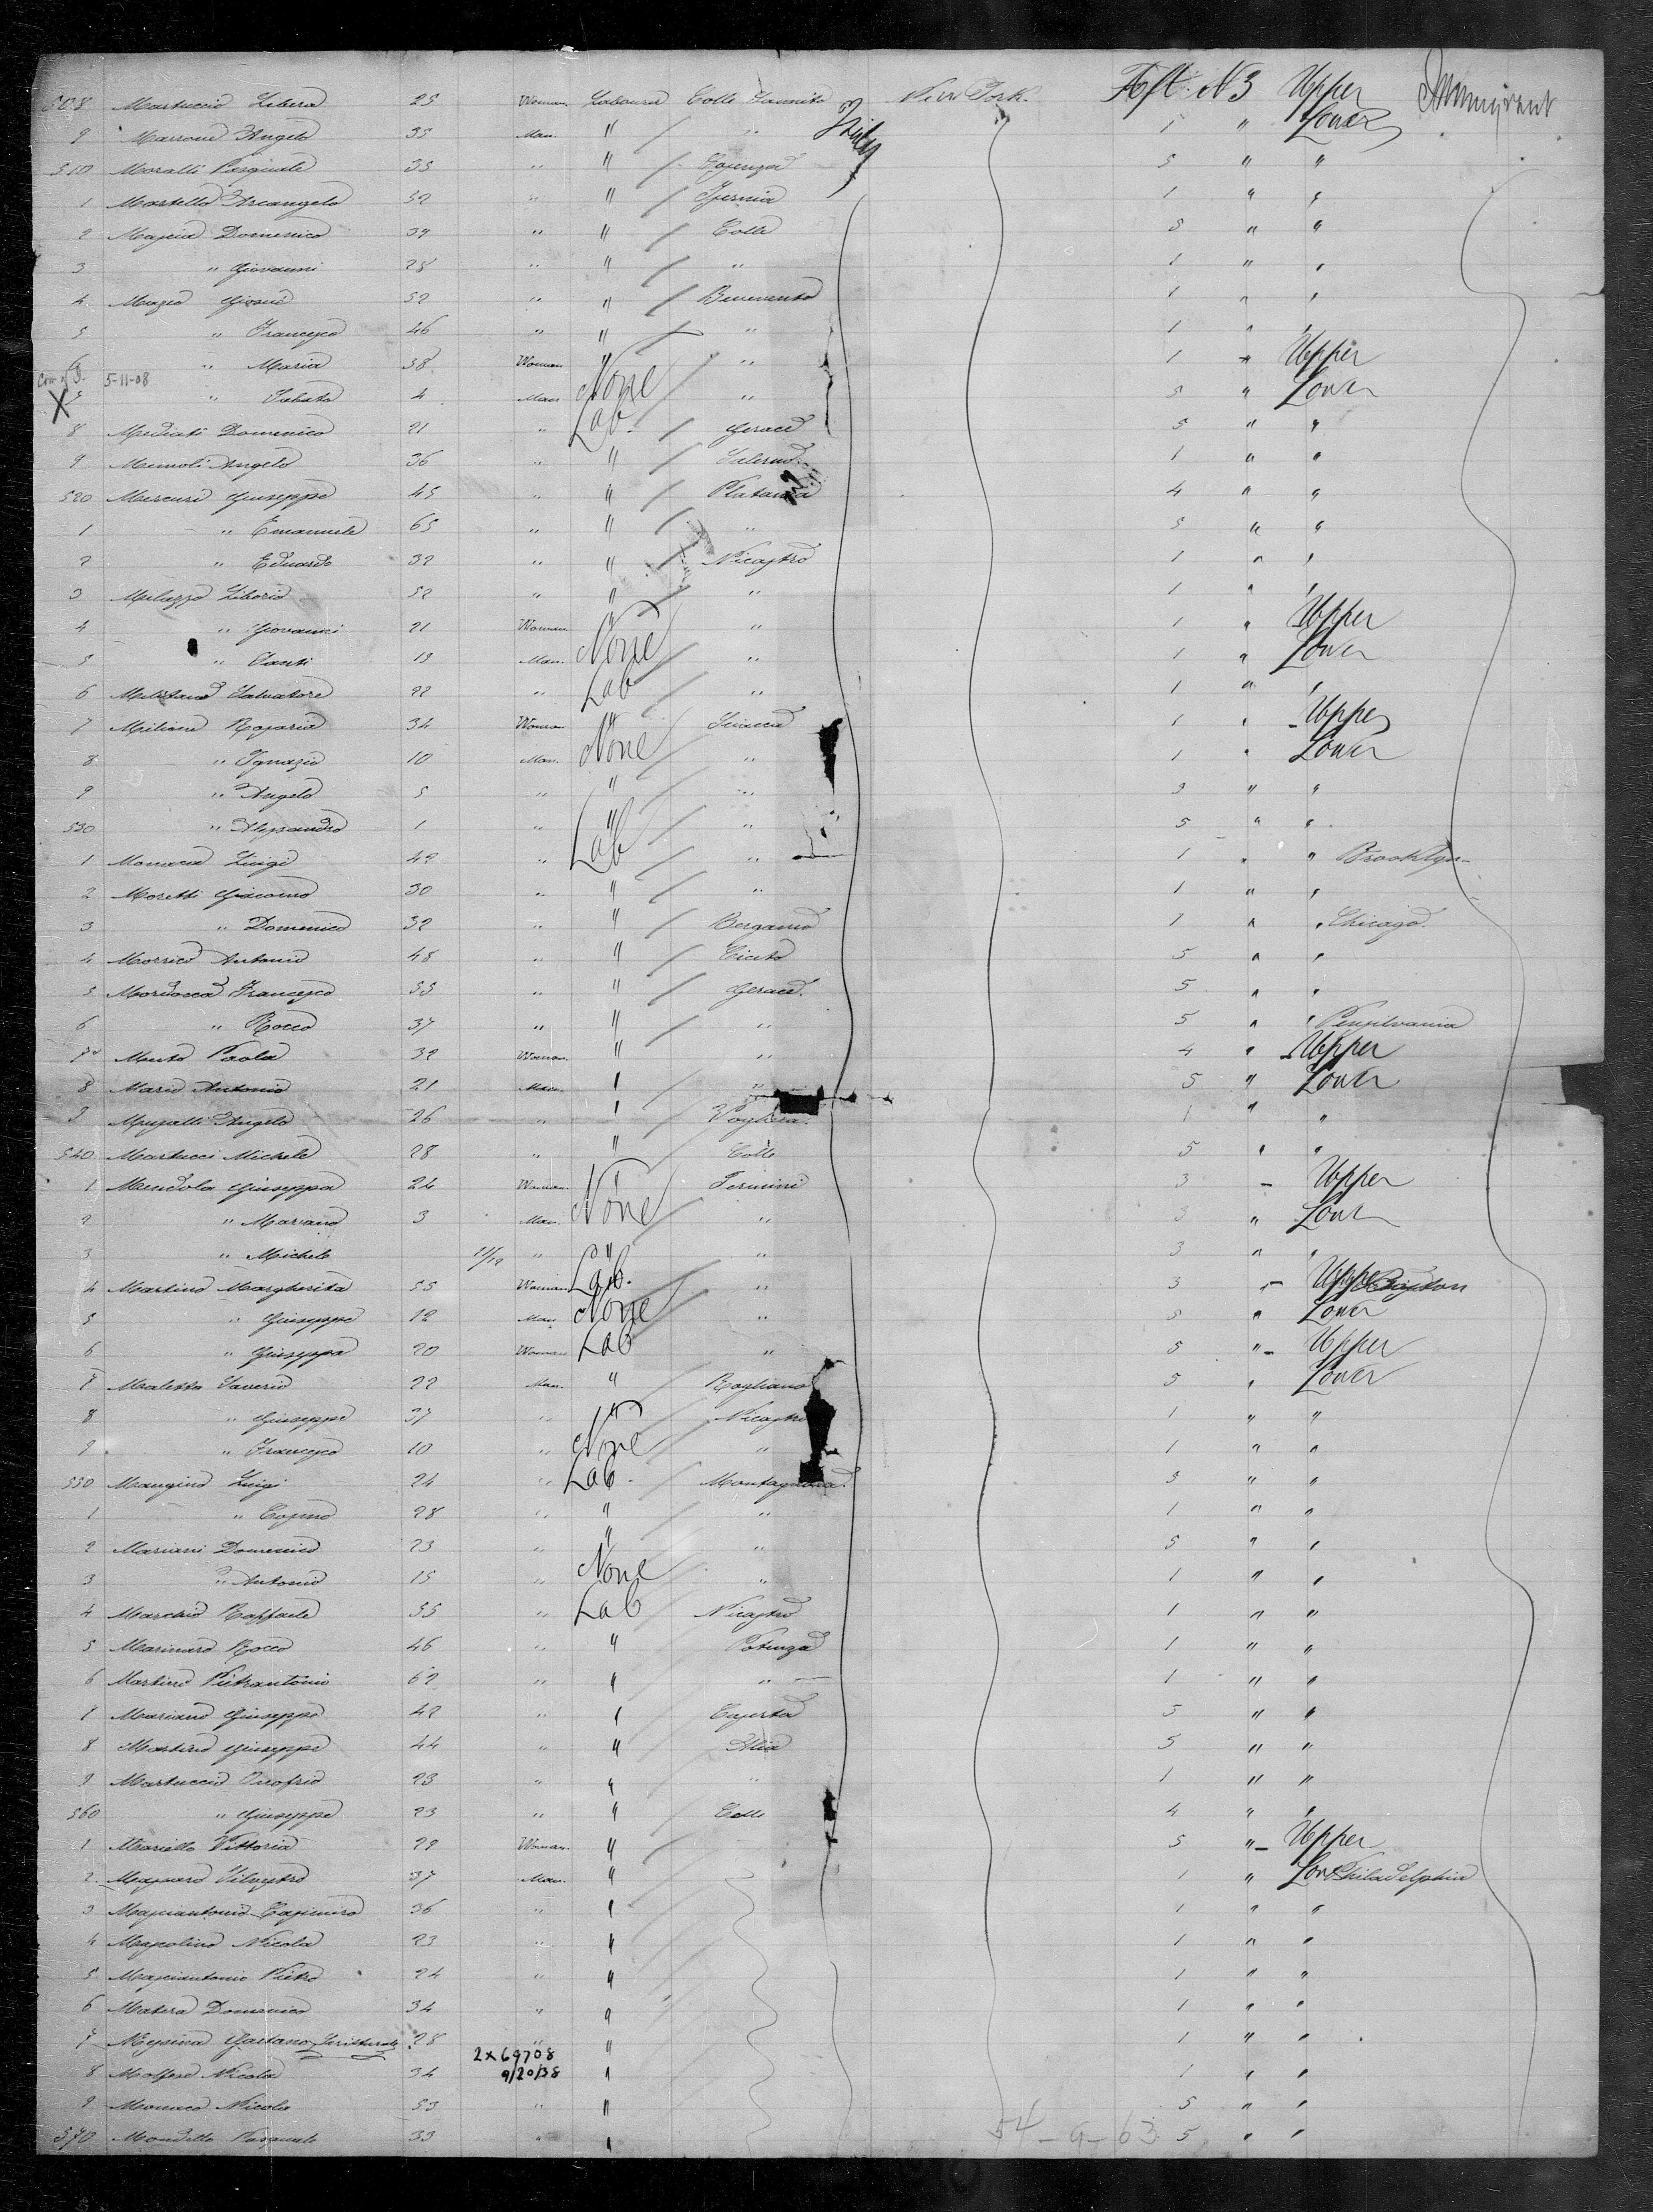 508 Martuccio Libera 25 Woman Labourer Colle Sannita New York Aft. N3 Upper Immigrant
9 Marrone Angelo 33 Man " / " Italy 5 " Lower
510 Moralli Pasquale 35 " " / Cosenza 5 " "
1 Martello Arcangelo 52 " " / Isernia 1 " "
2 Domenico 39 " " / Colle 5 " "
3 " Giovanni 28 " " / " 1 " "
4 52 " " / Benevento 1 " "
5 " Francesco 46 " " / " 1 " "
6 " Maria 38 Woman " / " 1 " Upper
5-11-08
X 7 " Sabato 4 Man None " 5 " Lower
8 Mediati Domenico 21 " Lab. / Gerace 5 " "
9 Angelo 36 " " / 1 " "
520 Mercuri Giuseppe 45 " " / Platania 4 " "
1 " Emanuele 65 " " / " 5 " "
2 " Eduardo 32 " " / Nicastro 1 " "
3 Milazzo Liborio 52 " " / " 1 " "
4 " Giovanni 21 Woman " / " 1 " Upper
5 " Santi 13 Man. None / " 1 " Lower
6 Salvatore 22 " Lab / " 1 " "
7 Rosaria 34 Woman " / Sciacca 1 " Upper
8 " Ignazio 10 Man. None / " 1 " Lower
9 " Angelo 5 " " / " 3 " "
530 " Alessandro 1 " " / " 5 " "
1 Luigi 42 " Lab / " 1 " " Brooklyn
2 Moretti Giacomo 30 " " / " 1 " "
3 " Domenico 32 " " / Bergamo 1 " " Chicago
4 Antonio 48 " " / 5 " "
5 Mordocca Francesco 33 " " / Gerace 5 " "
6 " Rocco 37 " " / " 5 " " Pensilvania
7 Muto Paola 32 Woman. " / " 4 " Upper
8 Antonio 21 Man. " / " 5 " Lower
9 Angelo 26 " " Voghera 1 " "
540 Martucci Michele 28 " " Colle 5 " "
1 Mendola Giuseppa 24 Woman. " Termini 3 - Upper
2 " Mariano 3 Man. None " 3 " Lower
3 " Michele 11/12 " " " 3 " "
4 Martino Margherita 55 Woman Lab. " 3 " Upper
5 " Giuseppe 12 Man None " " Lower
6 " Giuseppa 20 Woman Lab " 5 " Upper
7 Maletta Saverio 22 Man. " Rogliano 5 " Lower
8 " Giuseppe 37 " " Nicastro 1 " "
9 " Francesco 10 " None " 1 " "
550 Mangino Luigi 24 " Lab. / 3 " "
1 " Cosimo 28 " " / " 1 " "
2 Mariani Domenico 23 " " / " 5 " "
3 " Antonio 15 " None " 1 " "
4 Raffaele 55 " Lab Nicastro 1 " "
5 Marinaro Rocco 46 " " Potenza 1 " "
6 Martino Pietrantonio 62 " " " 1 " "
7 Mariano Giuseppe 42 " " Caserta 5 " "
8 Martino Giuseppe 44 " " Alia 5 " "
9 Martuccio Onofrio 23 " " " 1 " "
560 " Giuseppe 23 " " Colle 4 " "
1 Vittoria 22 Woman. " 5 " Upper
2 Silvestro 37 Man. " 1 " Lower Philadelphia
3 Masciantonio Casimiro 36 " " 1 " "
4 Nicola 23 " " 1 " "
5 Masciantonio Pietro 24 " " 1 " "
6 Matera Domenico 34 " " 1 " "
7 Messina Gaetano 28 " " 1 " "
2x69708
8 Nicola 34 9/20/38 " 1 " "
9 Monaco Nicola 53 " " 5 " "
570 Pasquale 33 " " 5 " "